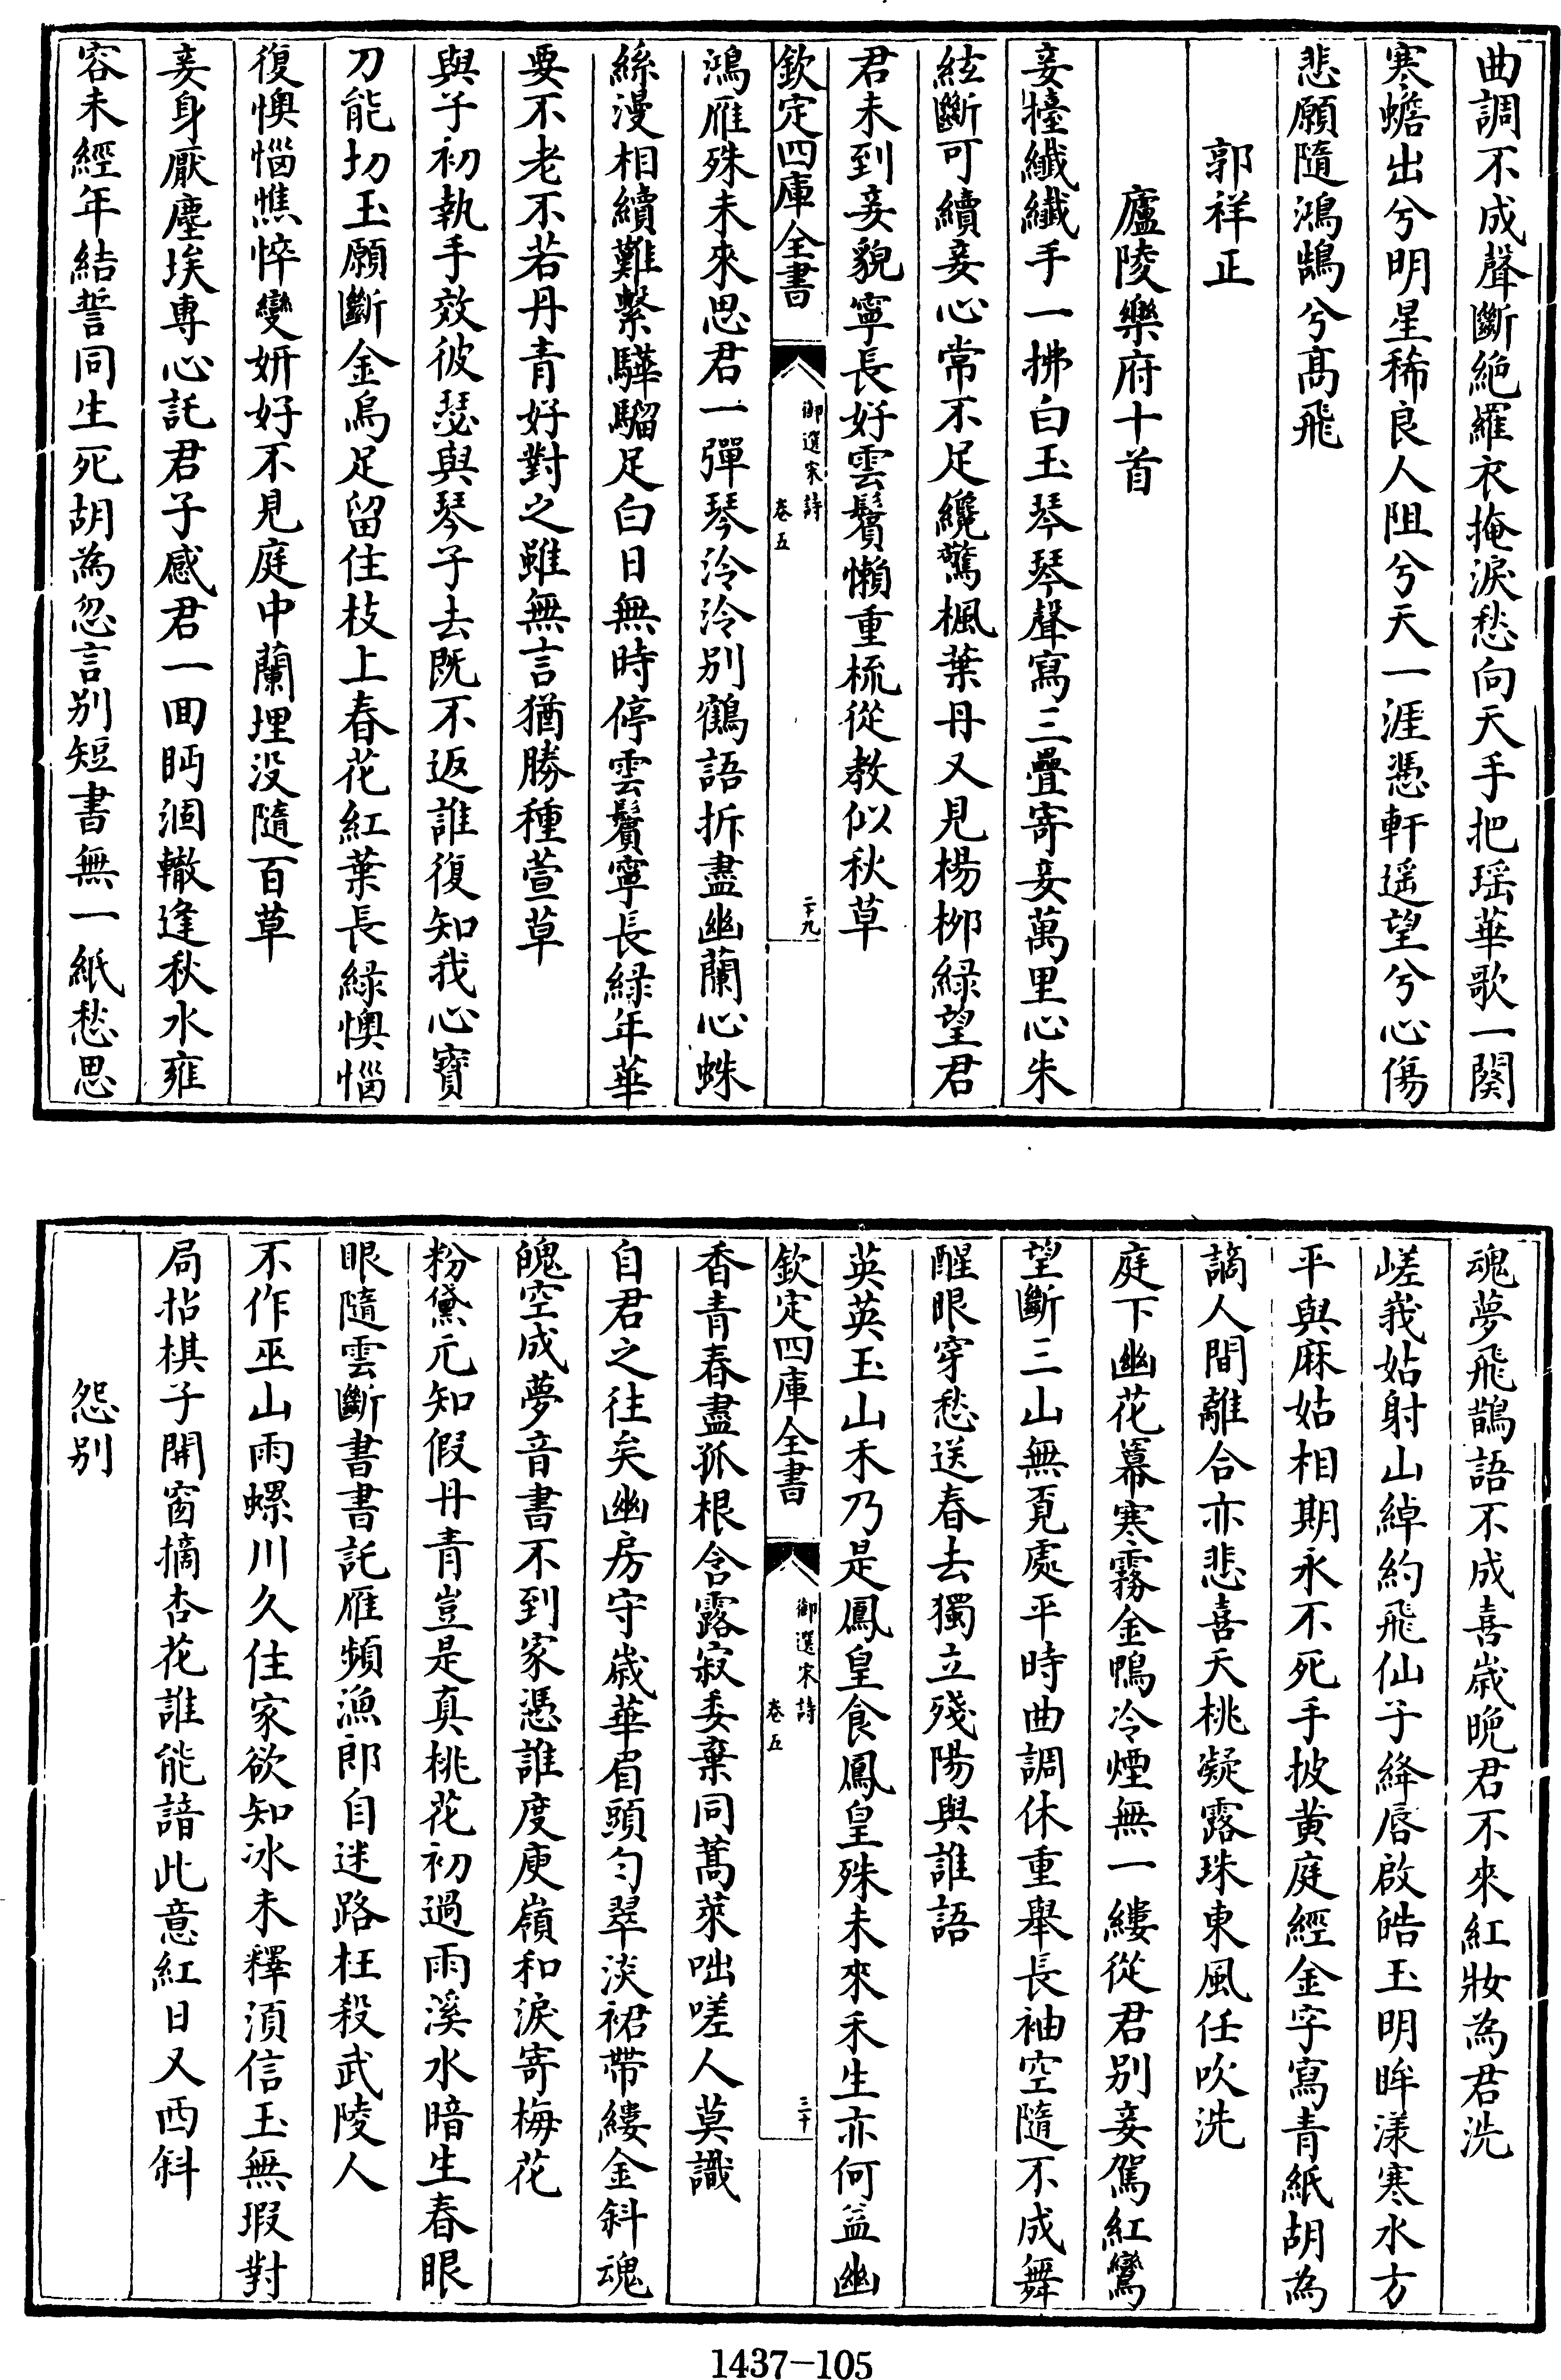 曲調不成聲斷絶羅衣掩淚愁向天手把瑶華歌一闋
寒蟾出兮明星稀良人阻兮天一涯憑軒遥望兮心傷
悲願隨鴻鵠兮髙飛
郭祥正
廬陵樂府十首
妾擡纖纖手一拂白玉琴琴聲寫三疊寄妾萬里心朱
絃斷可續妾心常不足纔驚楓葉丹又見楊栁緑望君
君未到妾貌寧長好雲鬢懶重梳從教似秋草
欽定四庫全書
御選宋詩
卷五
二十九
鴻雁殊未來思君一彈琴泠泠别鶴語拆盡幽蘭心蛛
絲漫相續難繫驊騮足白日無時停雲鬢寧長緑年華
要不老不若丹青好對之雖無言猶勝種萱草
與子初執手效彼瑟與琴子去既不返誰復知我心寳
刀能切玉願斷金烏足留住枝上春花紅葉長緑懊惱
復懊惱憔悴變妍好不見庭中蘭埋没隨百草
妾身厭塵埃専心託君子感君一回眄涸轍逢秋水雍
容未經年結誓同生死胡為忽言别短書無一紙愁思
魂夢飛鵲語不成喜歳晩君不來紅妝為君洗
嵯峩姑射山綽約飛仙子絳唇啟皓玉明眸漾寒水方
平與麻姑相期永不死手披黄庭經金字寫青紙胡為
謫人間離合亦悲喜夭桃凝露珠東風任吹洗
庭下幽花羃寒霧金鴨冷煙無一縷從君别妾駕紅鸞
望斷三山無覔處平時曲調休重舉長袖空隨不成舞
醒眼穿愁送春去獨立殘陽與誰語
英英玉山禾乃是鳳皇食鳳皇殊未來禾生亦何益幽
欽定四庫全書
御選宋詩
卷五
三十
香青春盡孤根含露寂委棄同蒿萊咄嗟人莫識
自君之往矣幽房守歳華眉頭匀翠淡裙帶縷金斜魂
魄空成夢音書不到家憑誰度庾嶺和淚寄梅花
粉黛元知假丹青豈是真桃花初過雨溪水暗生春眼
眼隨雲斷書書託雁頻漁郎自迷路枉殺武陵人
不作巫山雨螺川久住家欲知冰未釋湏信玉無瑕對
局拈棋子開窗摘杏花誰能諳此意紅日又西斜
怨别
1437-105